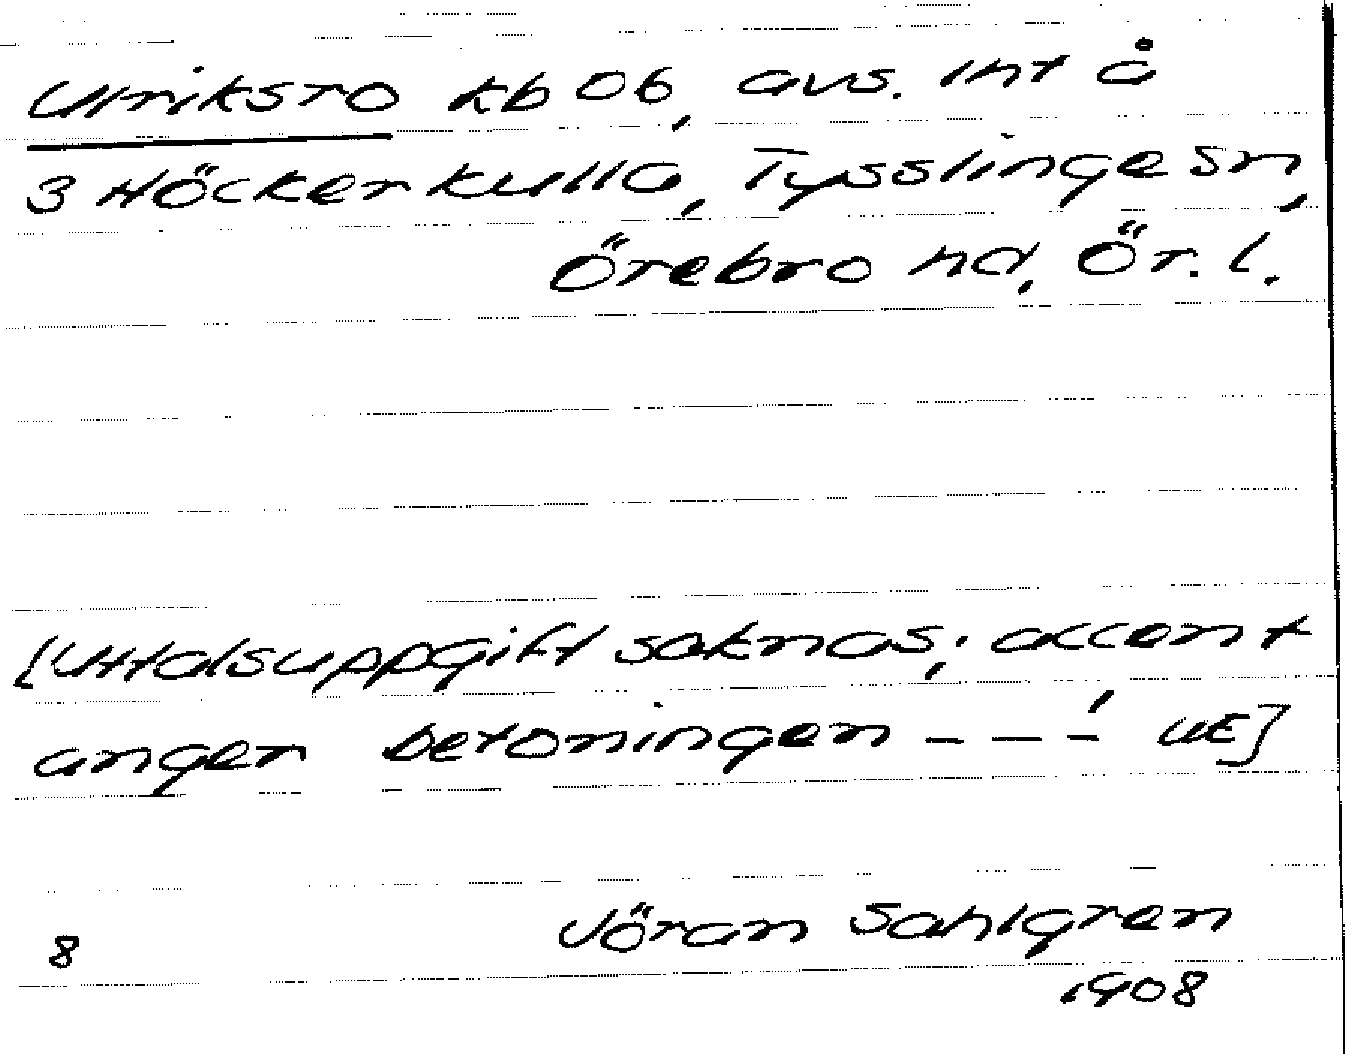 Ulriksro kb 06, avs. int å
3 Höckerkulla, Tysslinge sn,
Örebro hd, Ör. l.
[Uttalsuppgift saknas; accent
anger betoningen – – –́ UE]
Jöran Sahlgren
8
1908